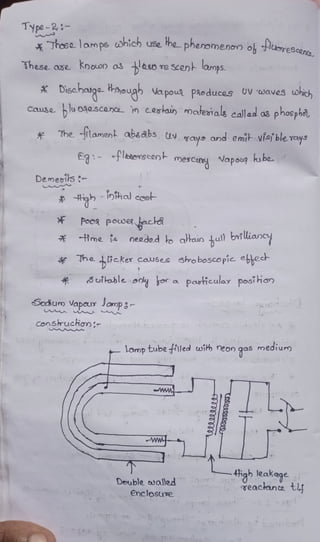 Type-2:-
* Those lamps which use the phenomenon of fluorescence
These are known as fluorescent lamps.
* Discharge through vapour produces UV waves which
cause fluorescence in certain materials called as phosphor
* The filament absorbs UV rays and emit visible rays
Eg:- -fluorescent mercury vapour tube.
Demerits:-
* High initial cost
* Poor power factor
* time is needed to attain full brilliancy
* The flicker causes stroboscopic effect
* Suitable only for a particular position
Sodium vapour lamp:-
construction:-
lamp tube filled with neon gas medium
Double walled
Enclosure
High leakage
reactance t/f